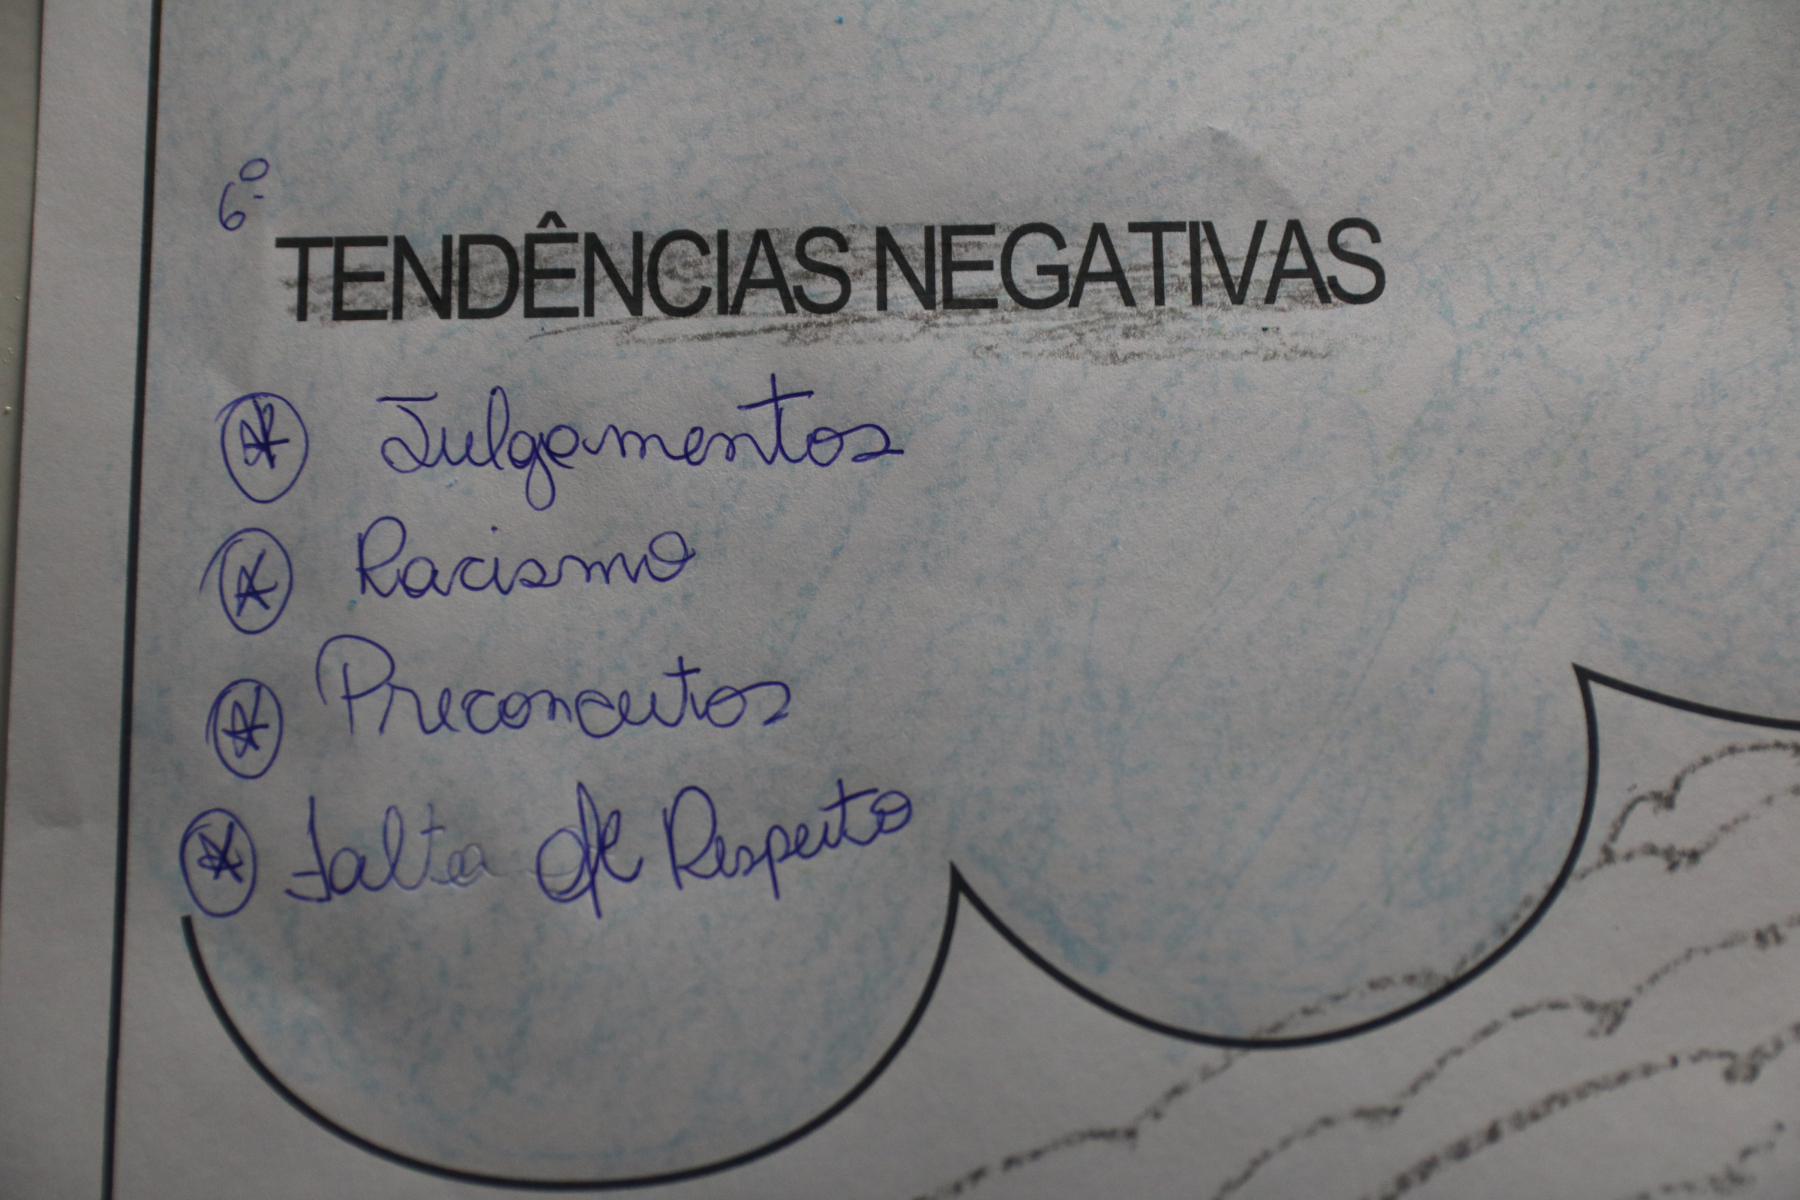 6º
TENDÊNCIAS NEGATIVAS
Julgamentos
Racismo
Preconceitos
Falta de Respeito